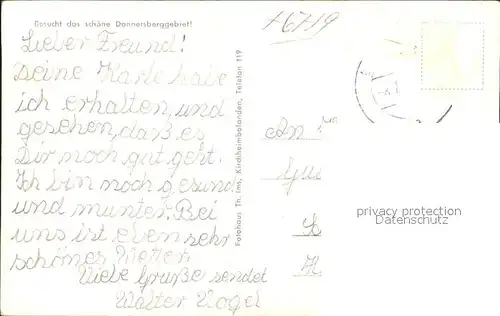 Besucht das schöne Donnersberggebiet!
+6719
Lieber Freund!
Deine Karte habe
ich erhalten, und
gesehen, daß es
Dir noch gut geht.
Ich bin noch gesund
und munter. Bei
uns ist eben sehr
schönes Wetter.
Viele Grüße sendet
Walter Vogel
Fotohaus Th. Ims, Kirchheimbolanden, Telefon 119
An
privacy protection
Datenschutz